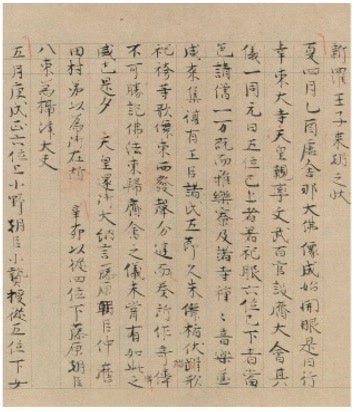 新羅王子來之狀
夏四月乙酉盧舍那大佛像成始開眼是日行
幸東大寺天皇親率文武百官設齋大會其
儀一同元日五位已上者著礼服六位已下者當
色請僧一万既而雅樂寮及諸寺種々音樂並
咸來集復有王臣諸氏五節久米儛楯伏蹋歌
袍袴等歌儛東西發聲分庭而奏所作奇偉
不可勝記佛法東歸齋會之儀未甞有如此之
盛也是夕 天皇還御大納言藤原朝臣仲麿
田村第以為御在所 辛卯以從四位下藤原朝臣
八束為攝津大夫
五月庚戌正六位上小野朝臣小贄授從五位下女